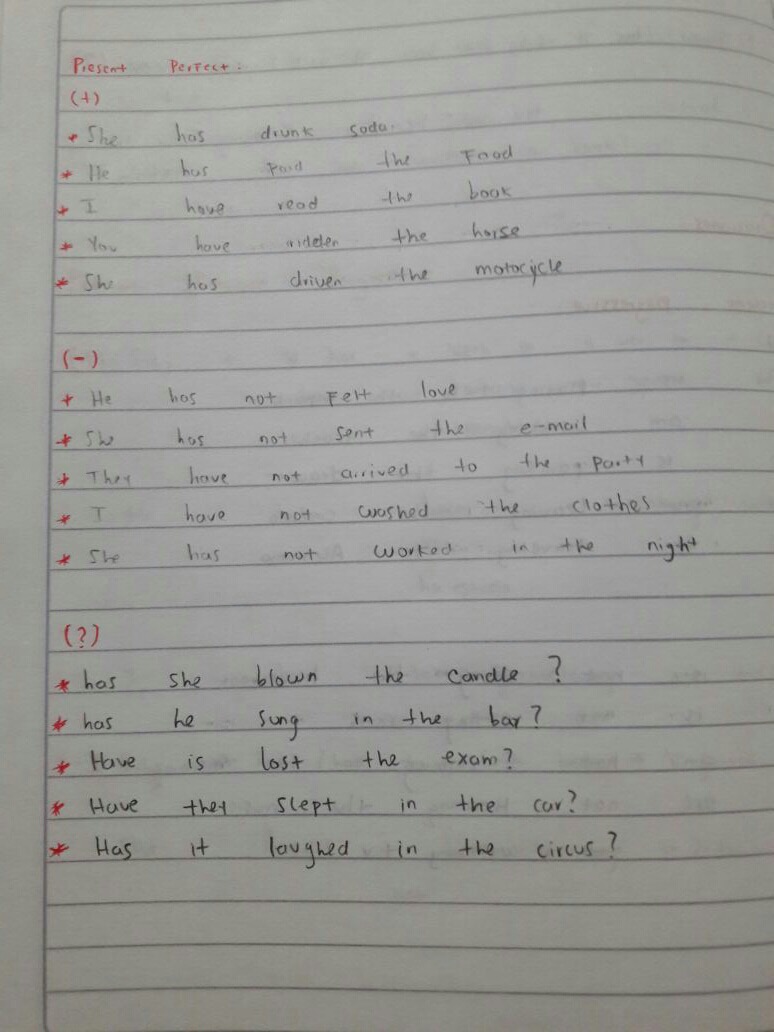 Present Perfect:
(+)
* She has drunk soda.
* He has paid the Food
* I have read the book
* You have ridden the horse
* She has driven the motocycle
(-)
* He has not Felt love
* She has not sent the e-mail
* They have not arrived to the party
* I have not washed the clothes
* She has not worked in the night
(?)
* has she blown the candle?
* has he sung in the bar?
* Have is lost the exam?
* Have they slept in the car?
* Has it laughed in the circus?